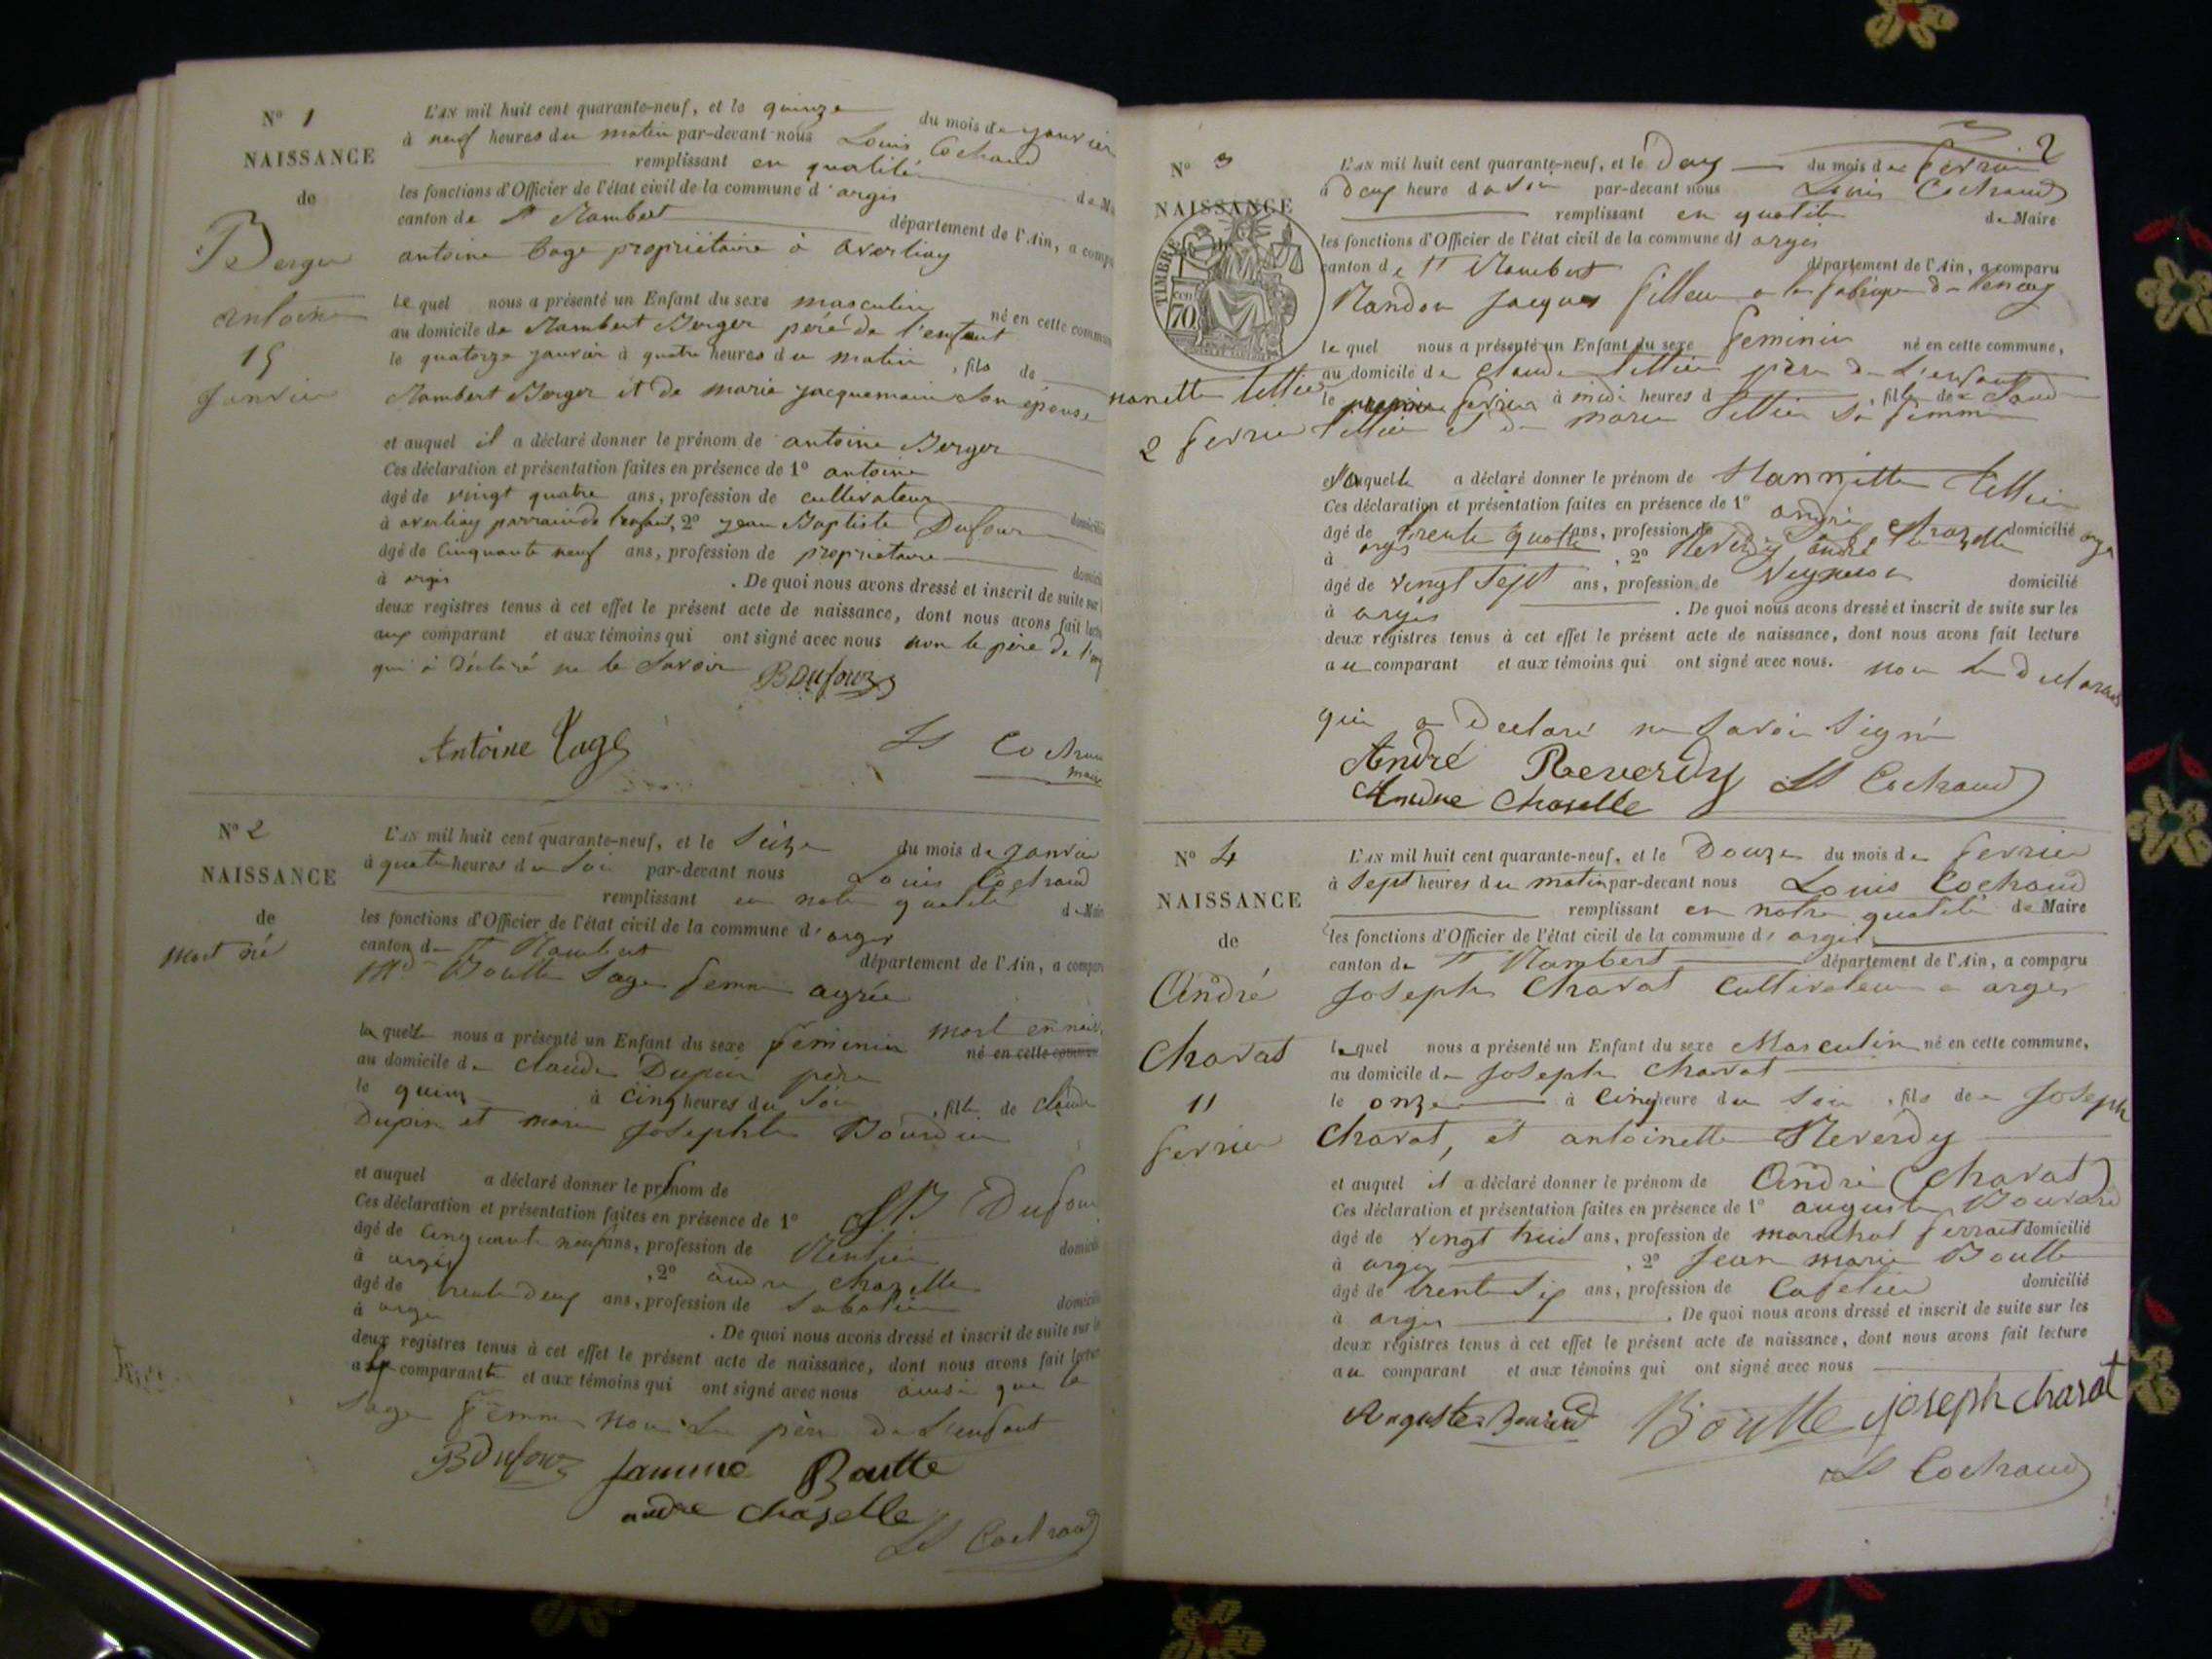 N° 1
NAISSANCE
de
Berger
antoine
15
Janvier
L'AN mil huit cent quarante-neuf, et le quinze du mois de janvier
à neuf heures du matin par-devant nous Louis Cochaud
remplissant en qualité de M
les fonctions d'Officier de l'état civil de la commune d'argis
canton de St Rambert département de l'Ain, a comp
antoine tage propriétaire à averliay
lequel nous a présenté un Enfant du sexe masculin né en cette commun
au domicile de Rambert Berger père de l'enfant
le quatorze janvier à quatre heures du matin, fils de
Rambert Berger et de marie jacquemain son épouse
et auquel il a déclaré donner le prénom de antoine Berger
Ces déclaration et présentation faites en présence de 1° antoine
âgé de vingt quatre ans, profession de cultivateur domicilié
à averliay parrain de l'enfant, 2° jean Baptiste Dufour
âgé de cinquante neuf ans, profession de propriétaire domicil
à argis . De quoi nous avons dressé et inscrit de suite sur
deux registres tenus à cet effet le présent acte de naissance, dont nous avons fait lectu
aux comparant et aux témoins qui ont signé avec nous non le père de l'
qui à déclaré ne le savoir BDufour
Antoine tage Ls Cochau
maire
N° 2
NAISSANCE
de
Mort né
L'AN mil huit cent quarante-neuf, et le seize du mois de janvier
à quatre heures du soir par-devant nous Louis Cochaud
remplissant en notre qualité de Mair
les fonctions d'Officier de l'état civil de la commune d'argis
canton de St Rambert département de l'Ain, a compar
Boutte sage femme agréé
laquelle nous a présenté un Enfant du sexe féminin mort en nais
né en cette commun
au domicile de claude Dupin père
le quinze à cinq heures du soir, fille de claude
Dupin et marie josephte Bourdin
et auquel a déclaré donner le prénom de
Ces déclaration et présentation faites en présence de 1° JB Dufour
âgé de cinquante neuf ans, profession de Rentier domicili
à argis, 2° andre chazelle
âgé de trente deux ans, profession de sabotier domicili
à argis . De quoi nous avons dressé et inscrit de suite sur l
deux registres tenus à cet effet le présent acte de naissance, dont nous avons fait lectur
a comparante et aux témoins qui ont signé avec nous ainsi que la
sage femme non le père de l'enfant
BDufour famme Boutte
andre chaselle
Ls Cochaud
2
N° 3
NAISSANCE
TIMBRE
70
nanette tellier
2 fevrier
L'AN mil huit cent quarante-neuf, et le Deux du mois de fevrier
à deux heure du soir par-devant nous Louis Cochaud
remplissant en qualité de Maire
les fonctions d'Officier de l'état civil de la commune d'argis
canton de St Rambert département de l'Ain, a comparu
Nandon jacques fileur a la fabrique de tenay
lequel nous a présenté un Enfant du sexe feminin né en cette commune,
au domicile de claude tellier père de l'enfant
le premier fevrier à midi heures d , fille de Claude
tellier et de marie tellier sa femme
et auquelle a déclaré donner le prénom de Nannette tellier
Ces déclaration et présentation faites en présence de 1° andré chazelle
âgé de trente quatre ans, profession de domicilié
à argis, 2° Reverdy andré
âgé de vingt sept ans, profession de vigneron domicilié
à argis . De quoi nous avons dressé et inscrit de suite sur les
deux registres tenus à cet effet le présent acte de naissance, dont nous avons fait lecture
au comparant et aux témoins qui ont signé avec nous. non le declarant
qui a Declaré ne savoir signé
André Reverdy Ls Cochaud
Andre Chaselle
N° 4
NAISSANCE
de
André
Charat
11
fevrier
L'AN mil huit cent quarante-neuf, et le Douze du mois de fevrier
à sept heures du matin par-devant nous Louis Cochaud
remplissant en notre qualité de Maire
les fonctions d'Officier de l'état civil de la commune d'argis
canton de St Rambert département de l'Ain, a comparu
Joseph Charat Cultivateur a argis
lequel nous a présenté un Enfant du sexe Masculin né en cette commune,
au domicile de Joseph Charat
le onze à cinq heure du soir, fils de Joseph
Charat, et antoinette Reverdy
et auquel il a déclaré donner le prénom de André (Charat)
Ces déclaration et présentation faites en présence de 1° auguste Bouvard
âgé de vingt huit ans, profession de marechal ferrant domicilié
à argis, 2° Jean marie Boutte
âgé de trente six ans, profession de Cafetier domicilié
à argis . De quoi nous avons dressé et inscrit de suite sur les
deux registres tenus à cet effet le présent acte de naissance, dont nous avons fait lecture
au comparant et aux témoins qui ont signé avec nous
Auguste Bouvard Boutte joseph charat
Ls Cochaud